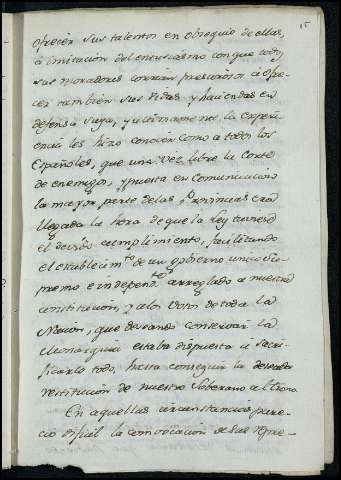 15
ofrecer sus talentos en obsequio de ellas,
á imitacion del entusiasmo con que todos
sus moradores corrian presurosos á ofre-
cer tambien sus vidas y haciendas en
defensa suya, y ultimamente la experi-
encia les hizo conocer como a todos los
Españoles, que una vez libre la Corte
de enemigos, y puesta en comunicacion
la mayor parte de las Provincias era
llegada la hora de que la Ley tuviese
el devido cumplimiento, facilitando
el establecim.to de un gobierno unico su-
premo e independ.te arreglado a nuestra
constitucion, y a los votos de toda la
Nacion, que deseando conservar la
Monarquia estaba dispuesta a sacri-
ficarlo todo, hasta conseguir la deseada
restitucion de nuestro Soberano al trono.
En aquellas circunstancias pare-
cio dificil la convocacion de sus repre-